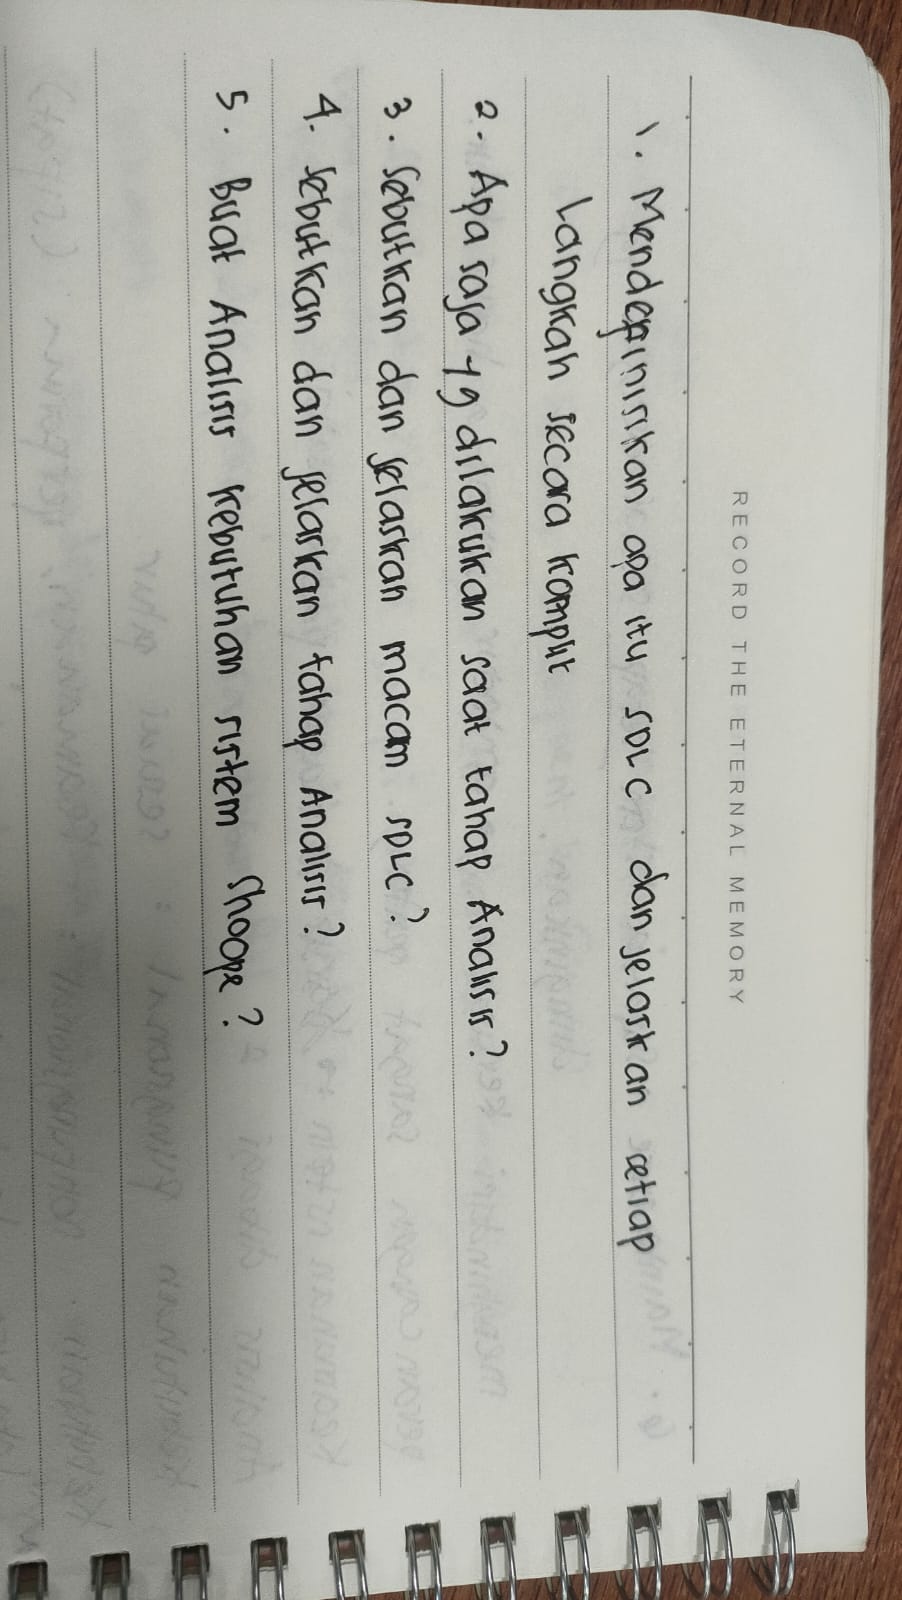 RECORD THE ETERNAL MEMORY
1. Mendefinisikan apa itu SDLC dan jelaskan cetiap
Langkah secara komplit
2. Apa saja yg dilakukan saat tahap Analisis?
3. Sebutkan dan jelaskan macam SDLC?
4. Sebutkan dan jelaskan tahap Analisis?
5. Buat Analisis kebutuhan sistem Shoope?